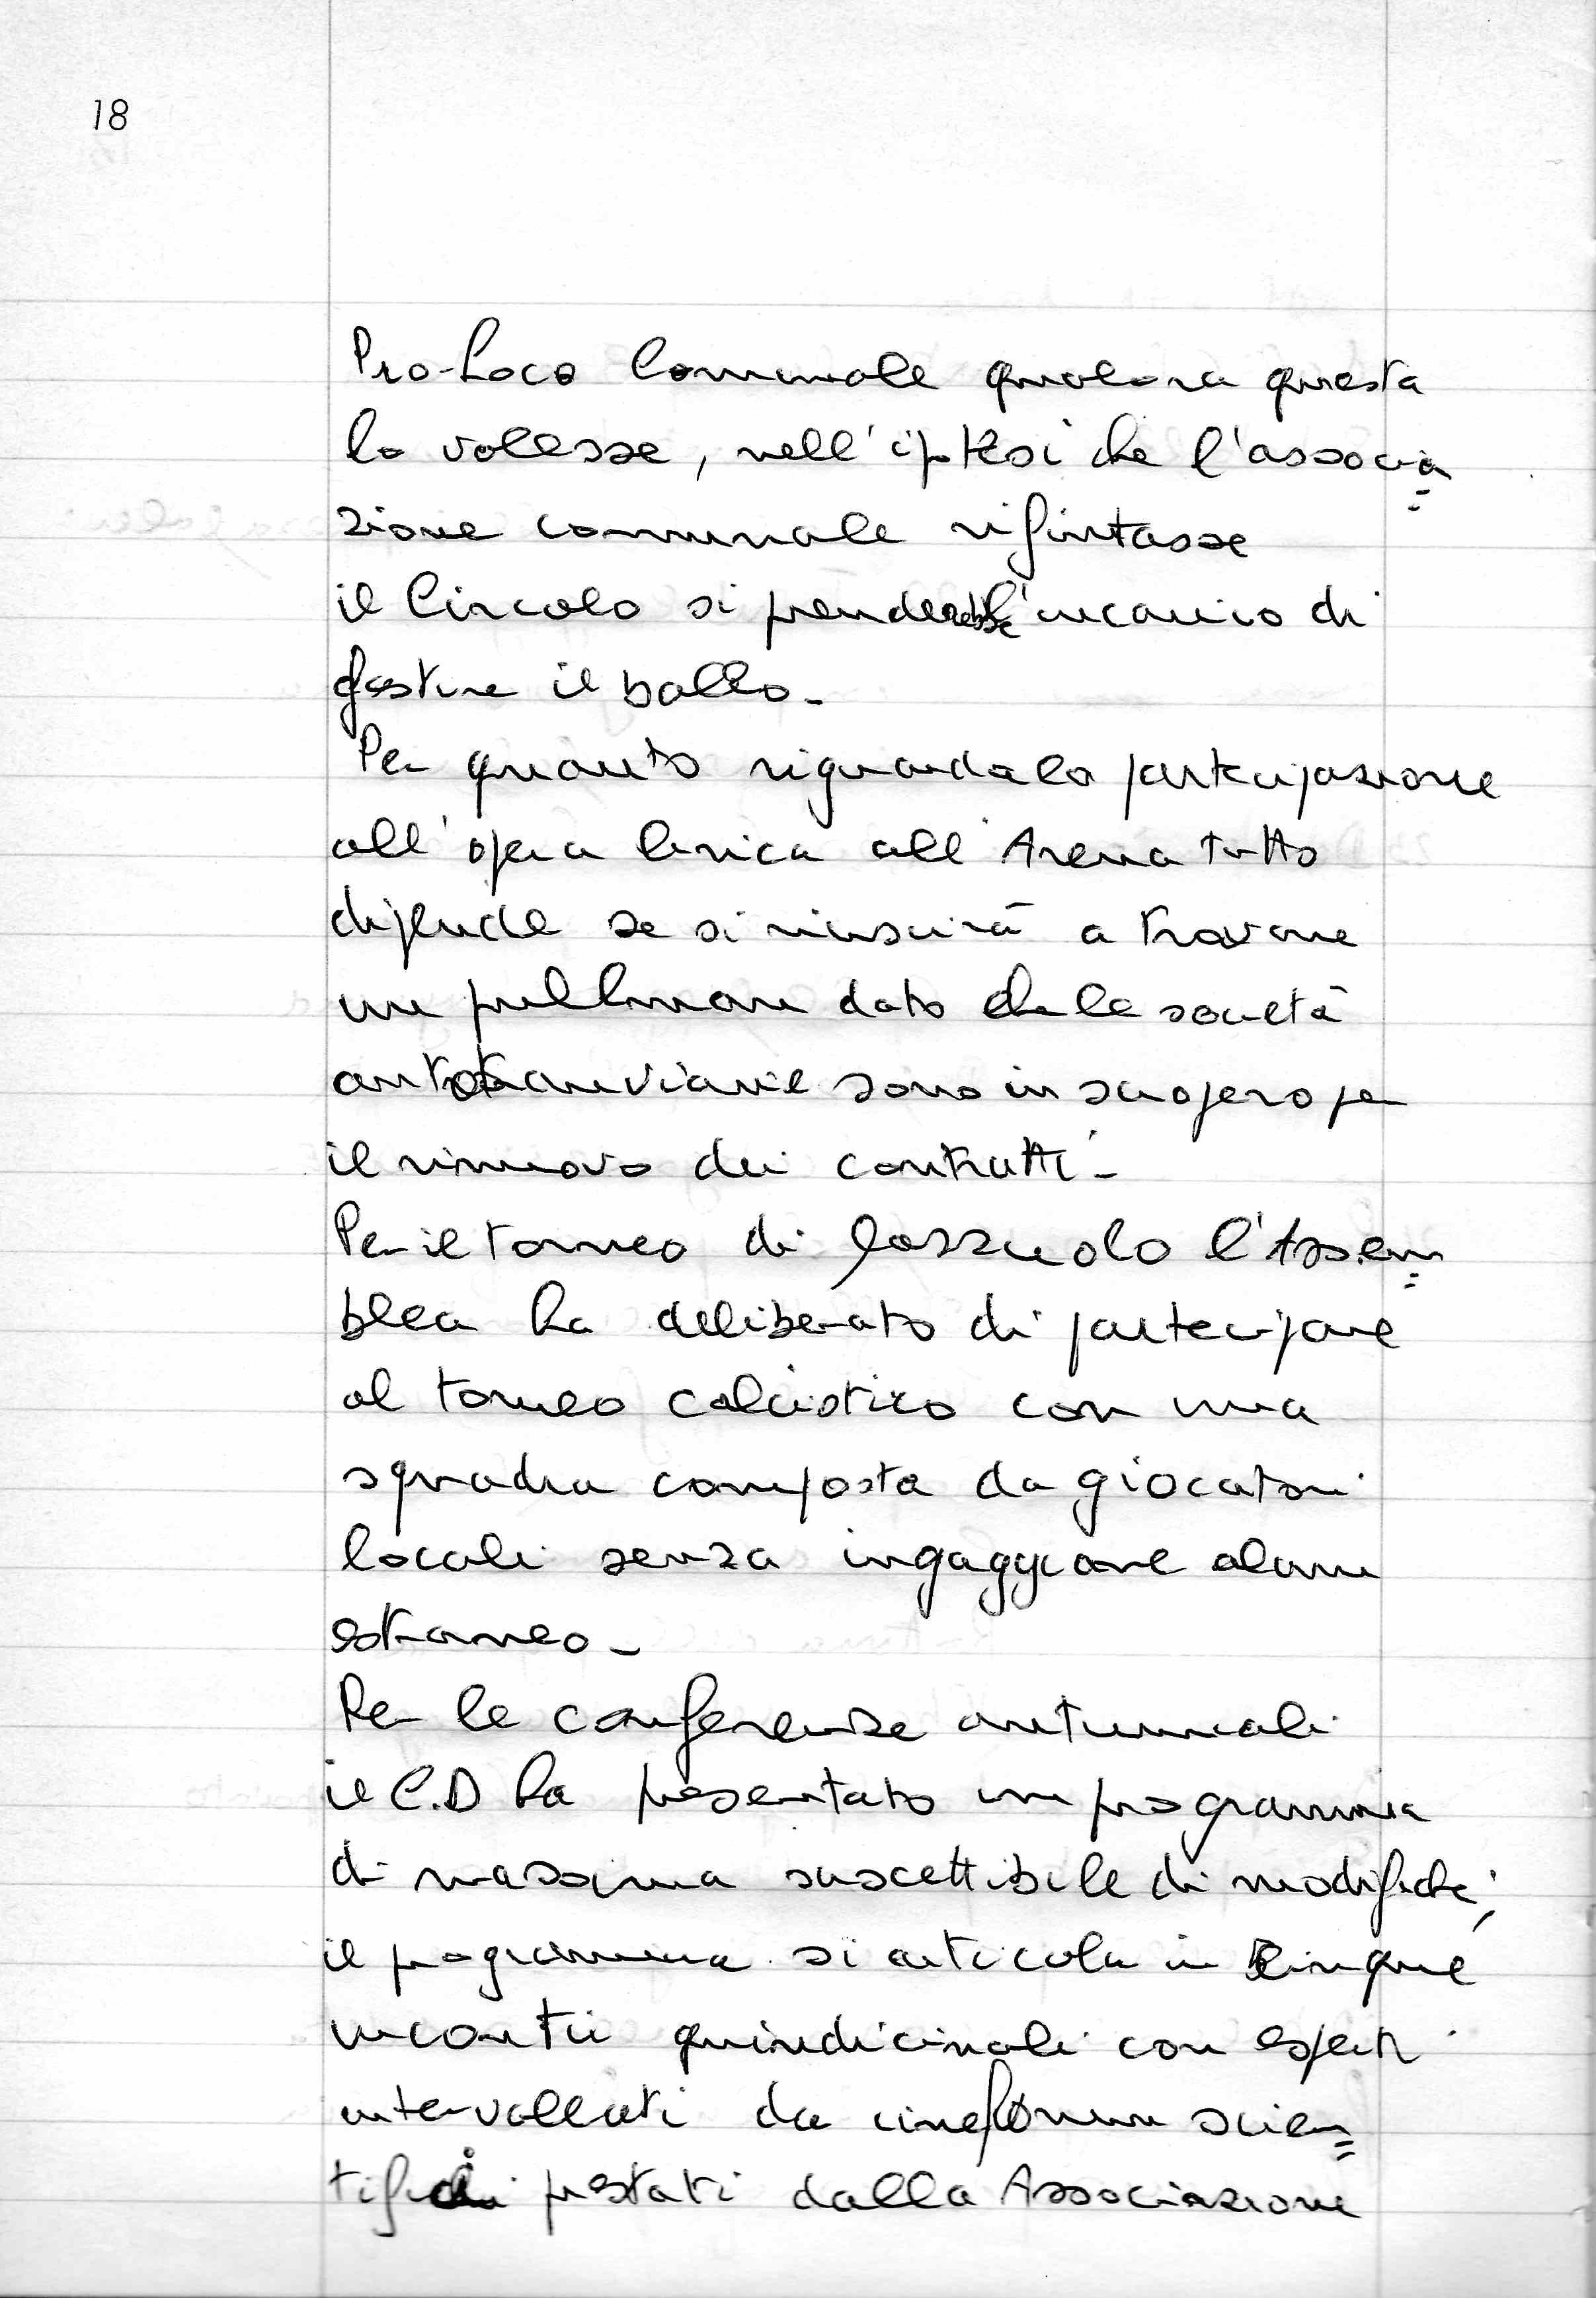 18
Pro-Loco Comunale qualora questa
lo volesse, nell'ipotesi che l'associa=
zione comunale rifiutasse
il Circolo si prenderebbe l'incarico di
gestire il ballo-
Per quanto riguarda la partecipazione
all'opera lirica all'Arena tutto
dipende se si riuscirà a trovare
un pullman dato che le società
autotranviarie sono in sciopero per
il rinnovo dei contratti-
Per il torneo di Gazzuolo l'Assem=
blea ha deliberato di partecipare
al torneo calcistico con una
squadra composta da giocatori
locali senza ingaggiare alcun
estraneo-
Per le conferenze autunnali
il C.D ha presentato un programma
di massima suscettibile di modifiche;
il programma si articola in cinque
incontri quindicinali con esperti
intervallati da cineforum scien=
tifici prestati dalla Associazione